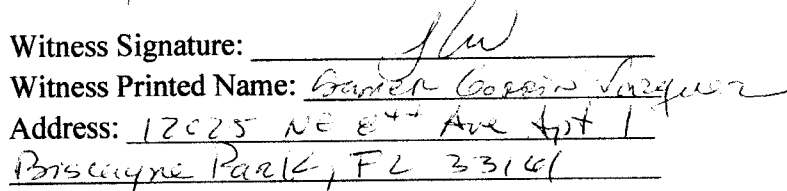 Witness Signature:
Witness Printed Name: Vazquez
Address: NE 8th Ave Apt 1
Biscayne Park, FL 33161